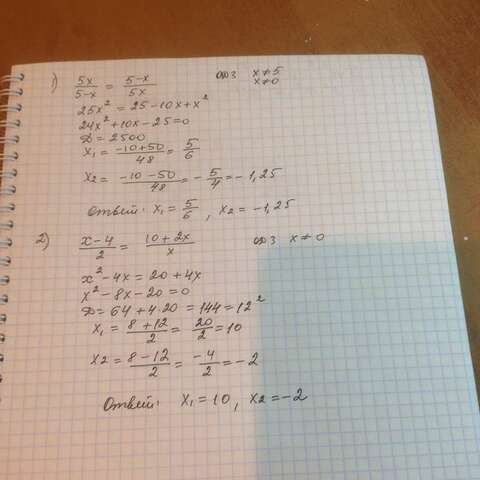 1) 5x/5-x = 5-x/5x ОДЗ x≠5
x≠0
25x² = 25-10x+x²
24x²+10x-25=0
D=2500
x₁ = -10+50/48 = 5/6
x₂ = -10-50/48 = -5/4 = -1,25
Ответ: x₁ = 5/6, x₂ = -1,25
2) x-4/2 = 10+2x/x ОДЗ x≠0
x²-4x=20+4x
x²-8x-20=0
D=64+4·20=144=12²
x₁ = 8+12/2 = 20/2 = 10
x₂ = 8-12/2 = -4/2 = -2
Ответ: x₁=10, x₂=-2